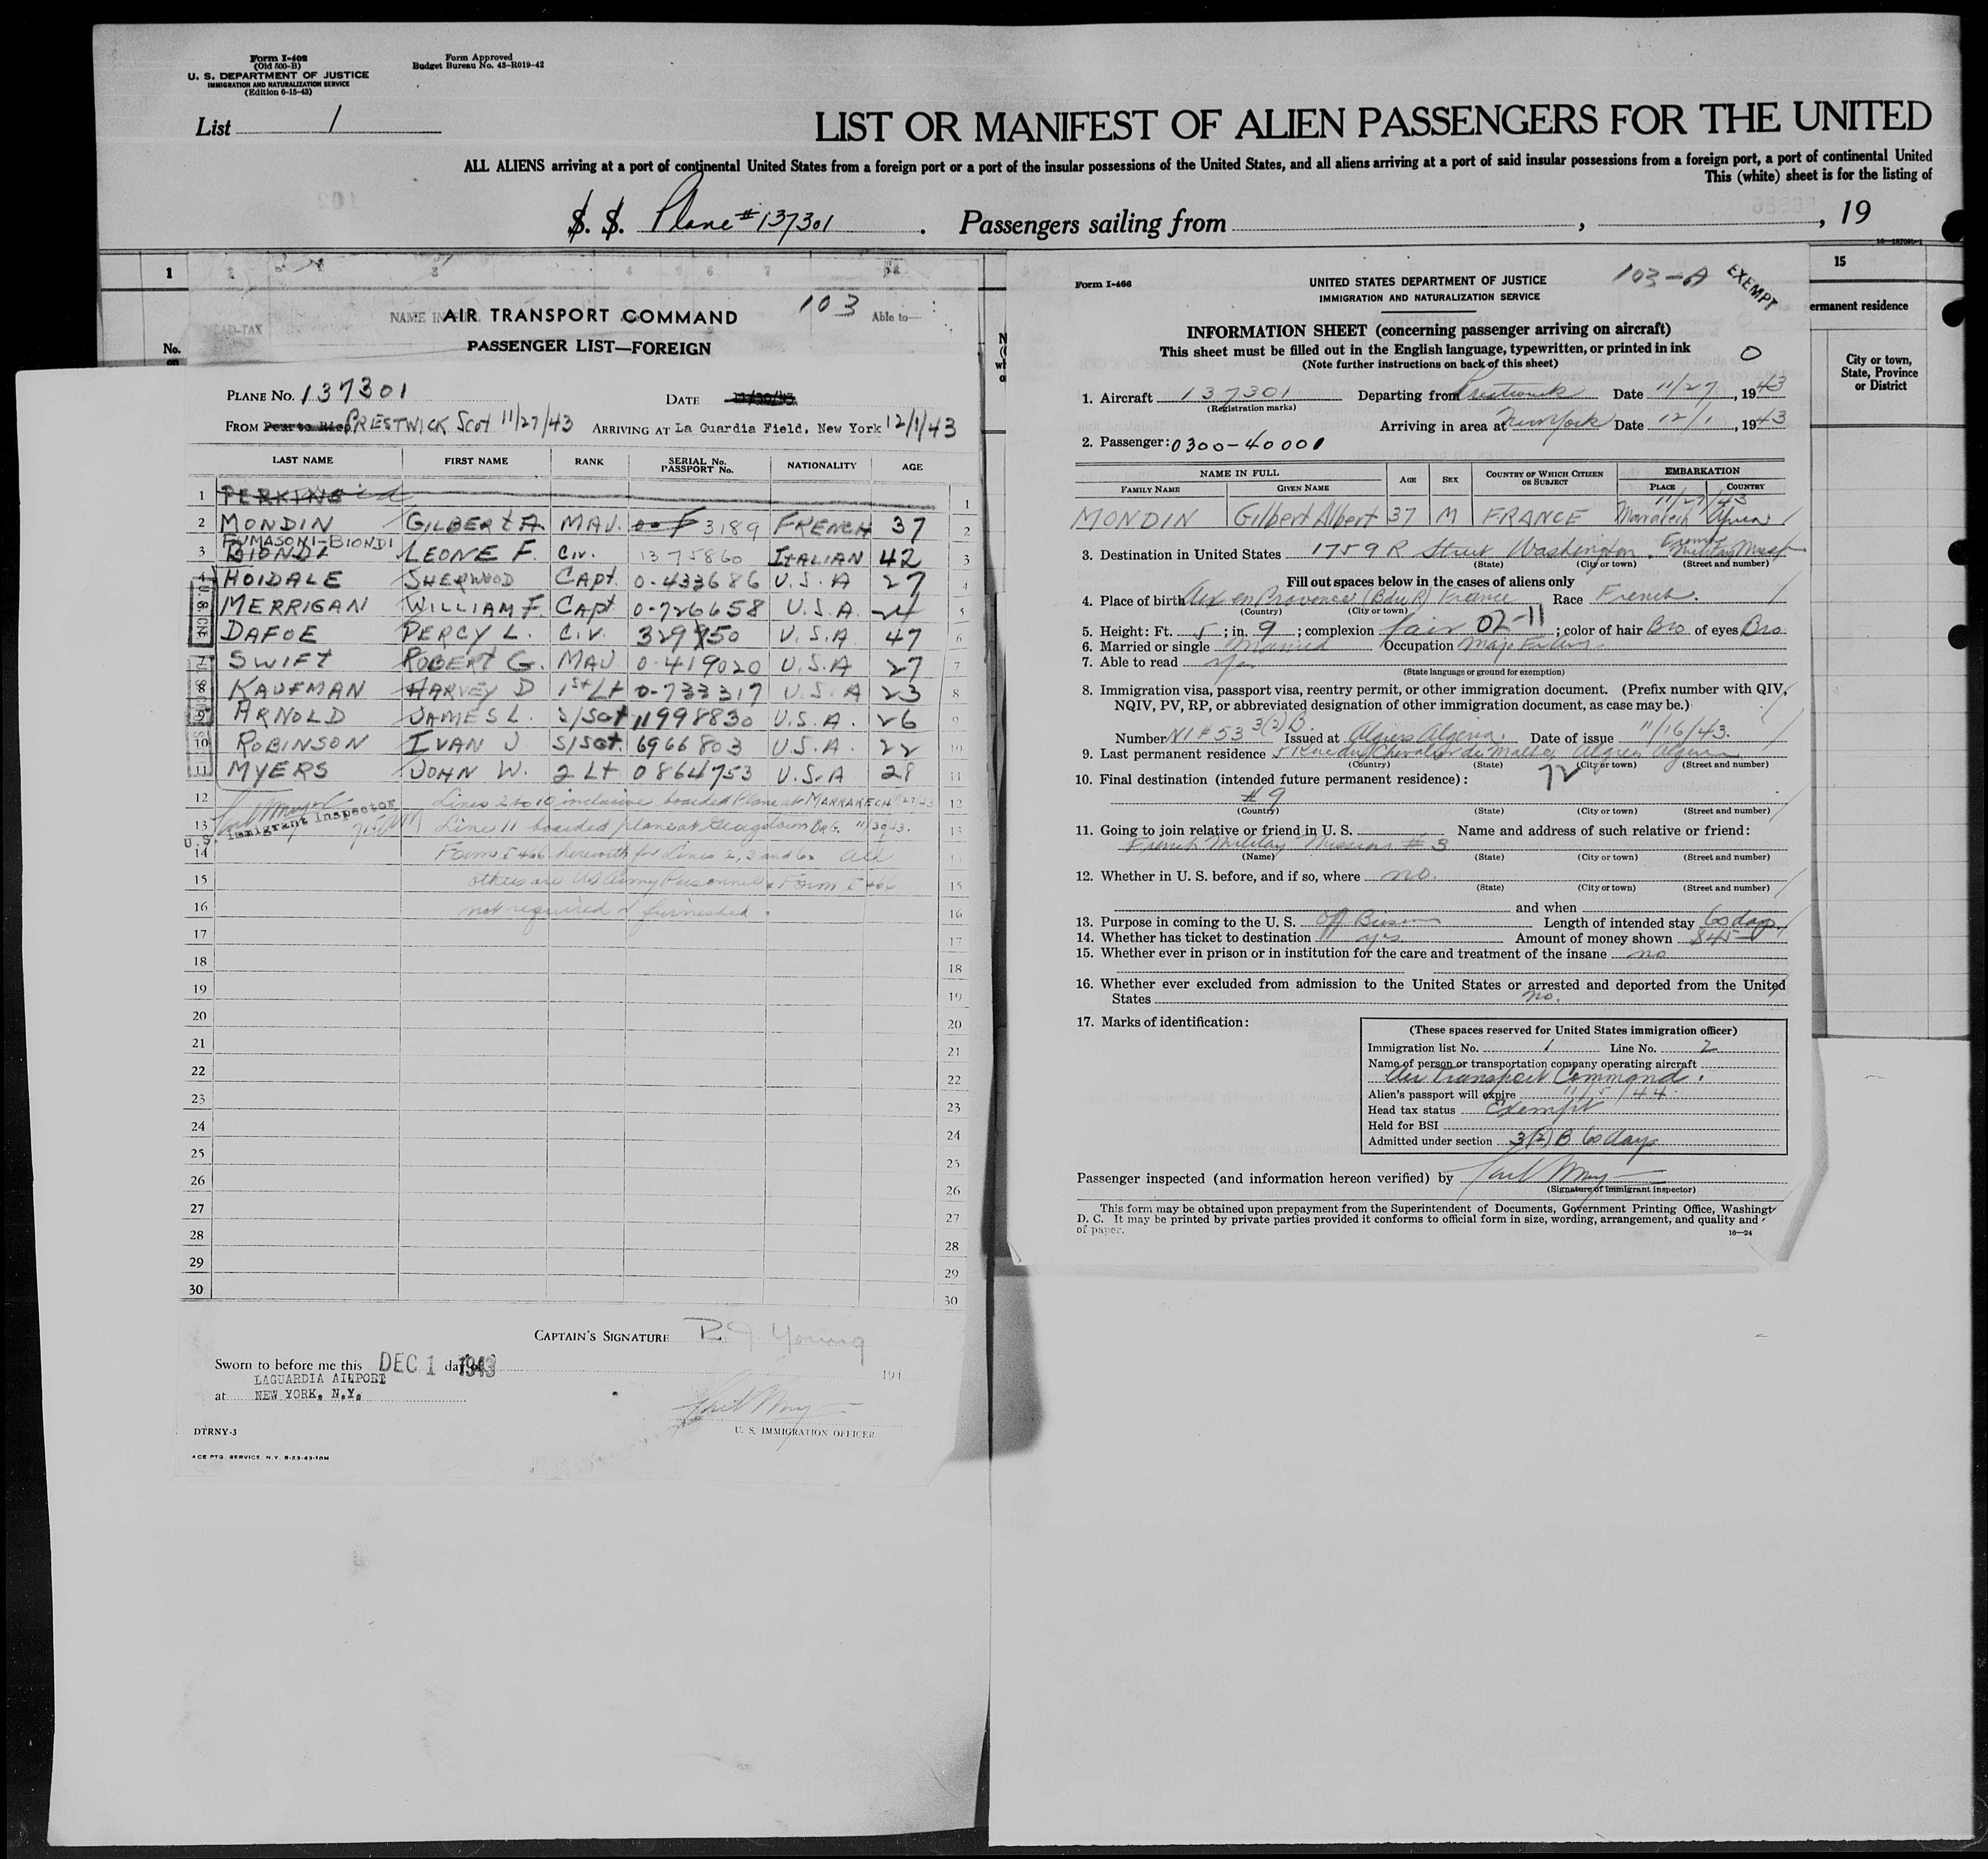 Form I-402
(Old 500-B)
U. S. DEPARTMENT OF JUSTICE
IMMIGRATION AND NATURALIZATION SERVICE
(Edition 6-15-43)
Form Approved
Budget Bureau No. 43-R019-42
List 1
LIST OR MANIFEST OF ALIEN PASSENGERS FOR THE UNITED
ALL ALIENS arriving at a port of continental United States from a foreign port or a port of the insular possessions of the United States, and all aliens arriving at a port of said insular possessions from a foreign port, a port of continental United
This (white) sheet is for the listing of
S. S. Plane #137301 . Passengers sailing from , , 19
1 2 3 4 5 6 7
103
NAME IN
AIR TRANSPORT COMMAND
Able to—
HEAD-TAX
No.
PASSENGER LIST—FOREIGN
PLANE NO. 137301
DATE 11/30/43
FROM Puerto Rico PRESTWICK Scot 11/27/43 ARRIVING AT La Guardia Field, New York 12/1/43
LAST NAME FIRST NAME RANK SERIAL No. PASSPORT No. NATIONALITY AGE
1 PERKINS 1
2 MONDIN GILBERT A. MAJ. 3189 FRENCH 37 2
FUMASONI-BIONDI
3 BIONDI LEONE F. Civ. 1375860 ITALIAN 42 3
4 HOIDALE SHERWOOD Capt. 0-433686 U.S.A 27 4
5 MERRIGAN WILLIAM F. Capt. 0-726658 U.S.A. 24 5
6 DAFOE PERCY L. CIV. 329850 U.S.A 47 6
7 SWIFT ROBERT G. MAJ 0-419020 U.S.A 27 7
8 KAUFMAN HARVEY D 1st Lt 0-733317 U.S.A 23 8
9 ARNOLD JAMES L. S/Sgt 11998830 U.S.A. 26 9
10 ROBINSON IVAN J S/Sgt. 6966803 U.S.A. 22 10
11 MYERS JOHN W. 2 Lt 0864753 U.S.A 28 11
12 Lines 2 to 10 inclusive boarded Plane at MARRAKECH 11/27/43 12
Immigrant Inspector
13 Line 11 boarded plane at Georgetown BrG. 11/30/43. 13
U.S.
14 Forms I 466 herewith for Lines 2, 3 and 6. All
15 others are US Army Personnel & Form I 466 15
16 not required or furnished. 16
17 17
18 18
19 19
20 20
21 21
22 22
23 23
24 24
25 25
26 26
27 27
28 28
29 29
30 30
CAPTAIN'S SIGNATURE R.J. Young
Sworn to before me this DEC 1 1943 day of
194
LAGUARDIA AIRPORT
at NEW YORK, N.Y.
Earl May
U. S. IMMIGRATION OFFICER
DTRNY-3
ACE PTG. SERVICE, N.Y. 8-23-43-10M
Form I-466
UNITED STATES DEPARTMENT OF JUSTICE
IMMIGRATION AND NATURALIZATION SERVICE
103-A
EXEMPT
INFORMATION SHEET (concerning passenger arriving on aircraft)
This sheet must be filled out in the English language, typewritten, or printed in ink
(Note further instructions on back of this sheet)
0
1. Aircraft 137301 Departing from Prestwick Date 11/27, 1943
(Registration marks)
Arriving in area at New York Date 12/1, 1943
2. Passenger: 0300-40001
NAME IN FULL
FAMILY NAME GIVEN NAME AGE SEX COUNTRY OF WHICH CITIZEN OR SUBJECT EMBARKATION PLACE COUNTRY
11/27/43
MONDIN Gilbert Albert 37 M FRANCE Marrakech Africa
3. Destination in United States 1759 R Street Washington. French Military Miss
(State) (City or town) (Street and number)
Fill out spaces below in the cases of aliens only
4. Place of birth Aix en Provence (B du R) France Race French.
(Country) (City or town)
5. Height: Ft. 5; in. 9; complexion fair 02-11; color of hair Bro of eyes Bro
6. Married or single Married Occupation Maj.
7. Able to read yes
(State language or ground for exemption)
8. Immigration visa, passport visa, reentry permit, or other immigration document. (Prefix number with QIV, NQIV, PV, RP, or abbreviated designation of other immigration document, as case may be.)
Number NI #53 3(2)B Issued at Algiers Algeria. Date of issue 11/16/43.
9. Last permanent residence 5 Rue du Chevalier de Malte, Algiers Algeria
(Country) (State) (City or town) (Street and number)
72
10. Final destination (intended future permanent residence):
#9
(Country) (State) (City or town) (Street and number)
11. Going to join relative or friend in U. S. Name and address of such relative or friend:
French Military Mission #3
(Name) (State) (City or town) (Street and number)
12. Whether in U. S. before, and if so, where no.
(State) (City or town) (Street and number)
and when
13. Purpose in coming to the U. S. Off Business Length of intended stay 60 days
14. Whether has ticket to destination yes Amount of money shown $45
15. Whether ever in prison or in institution for the care and treatment of the insane no
16. Whether ever excluded from admission to the United States or arrested and deported from the United States no.
17. Marks of identification:
(These spaces reserved for United States immigration officer)
Immigration list No. 1 Line No. 2
Name of person or transportation company operating aircraft
Air Transport Command.
Alien's passport will expire 11/5/44
Head tax status Exempt
Held for BSI
Admitted under section 3(2)B 60 days
Passenger inspected (and information hereon verified) by Earl May
(Signature of immigrant inspector)
This form may be obtained upon prepayment from the Superintendent of Documents, Government Printing Office, Washingt
D. C. It may be printed by private parties provided it conforms to official form in size, wording, arrangement, and quality and
of paper.
16—24
15
ermanent residence
City or town,
State, Province
or District